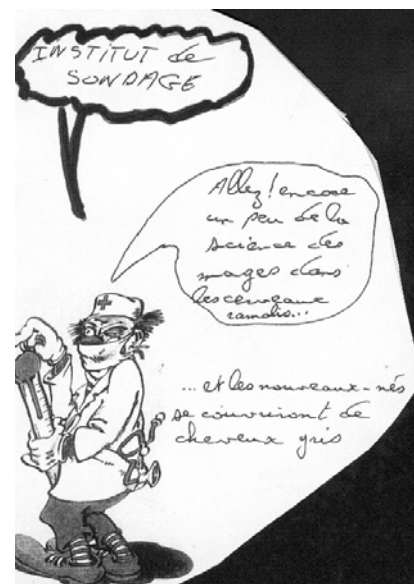 INSTITUT de
SONDAGE
Allez! encore
un peu de la
science des
mages dans
les cerveaux
ramolis...
...et les nouveaux-nés
se couvriront de
cheveux gris